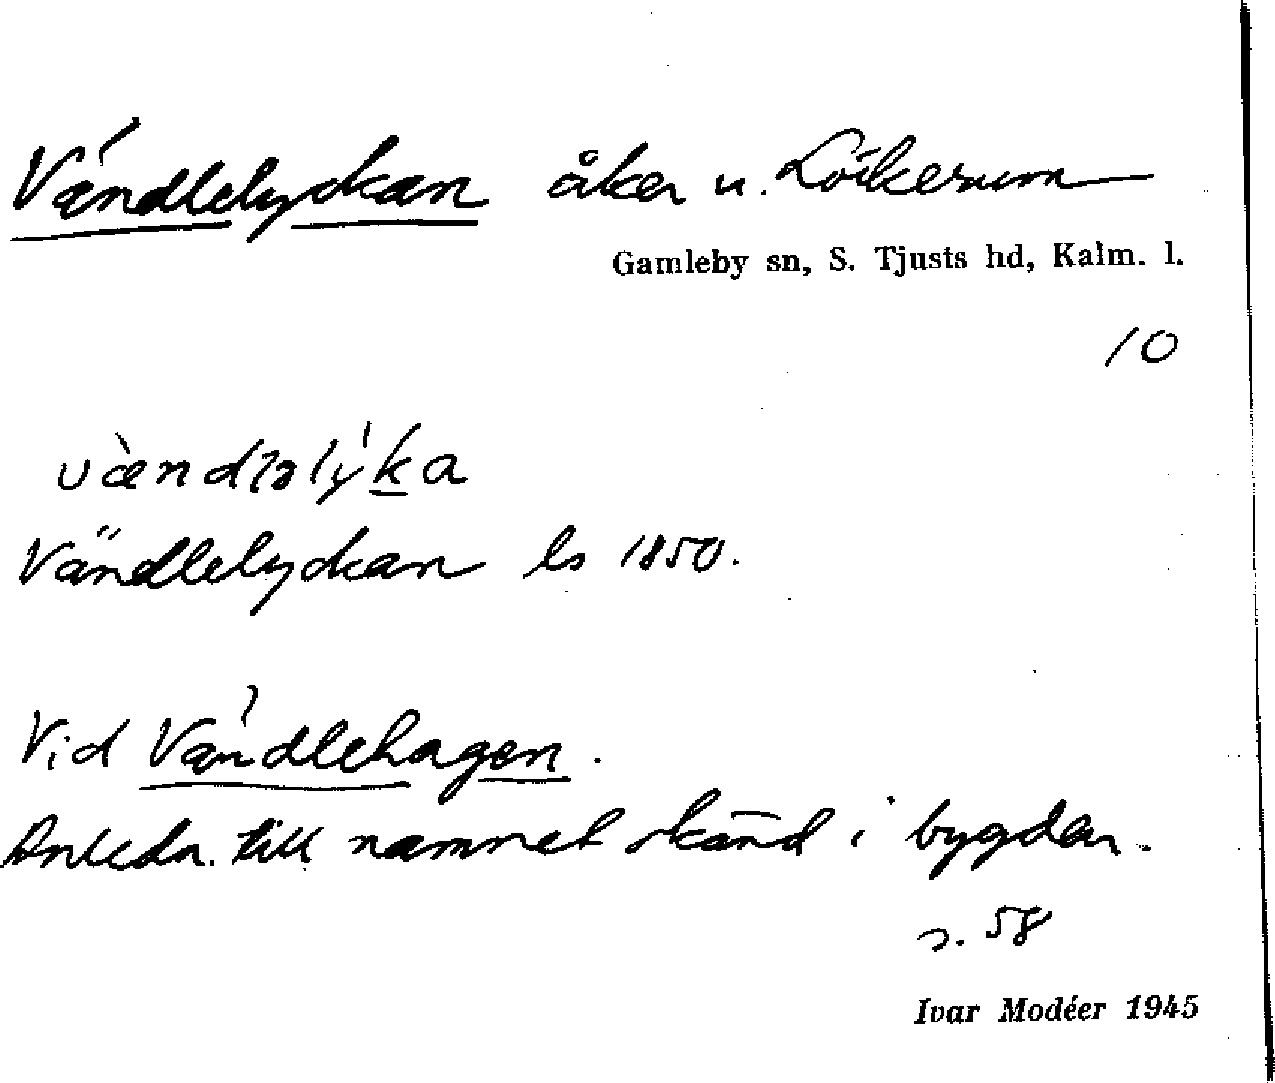 Vändlelyckan åker u. Lökerum
Gamleby sn, S. Tjusts hd, Kalm. l.
10
vàndləlýka
Vändlelyckan ls 1850.
Vid Vändlehagen.
Anledn. till namnet känd i bygden.
s. 58
Ivar Modéer 1945